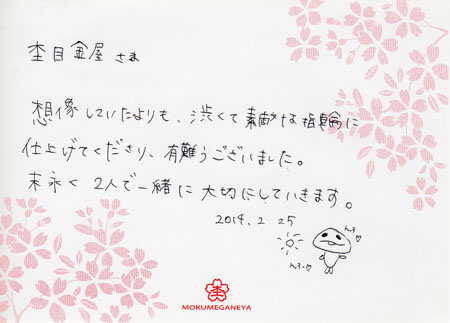 杢目金屋 さま
想像していたよりも、渋くて素敵な指輪に
仕上げてくださり、有難うございました。
末永く2人で一緒に大切にしていきます。
2014.2 25
MOKUMEGANEYA